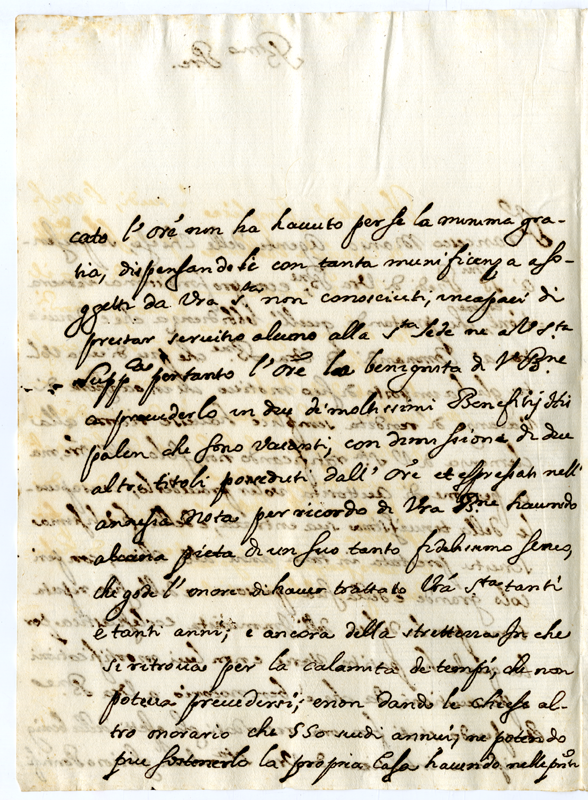 cato l'Ore non ha havuto per se la minima gra-
tia, dispensandosi con tanta munificenza a so-
ggetti da Vra Sta non conosciuti, incapaci di
prestar servitio alcuno alla Sta Sede ne a V. Sta
Suppca pertanto l'Ore la benignita di V. Bne
a provederlo in due di moltissimi Benefitij
che sono vacanti, con dimissione di due
altri titoli posseduti dall'Ore et espressati nell'
annessa Nota per ricordo di Vra Bne havendo
alcuna pieta di un suo tanto fidelissimo servo,
che gode l'onore di haver trattato Vra Sta tanti
e tanti anni; e ancora della strettezza in che
si ritrova per la calamita de tempi, che non
poteva prevedersi; e non dando le chiese al-
tro onorario che 550 scudi annui; ne potendo
piu sostenerlo la propria Casa havendo nelle